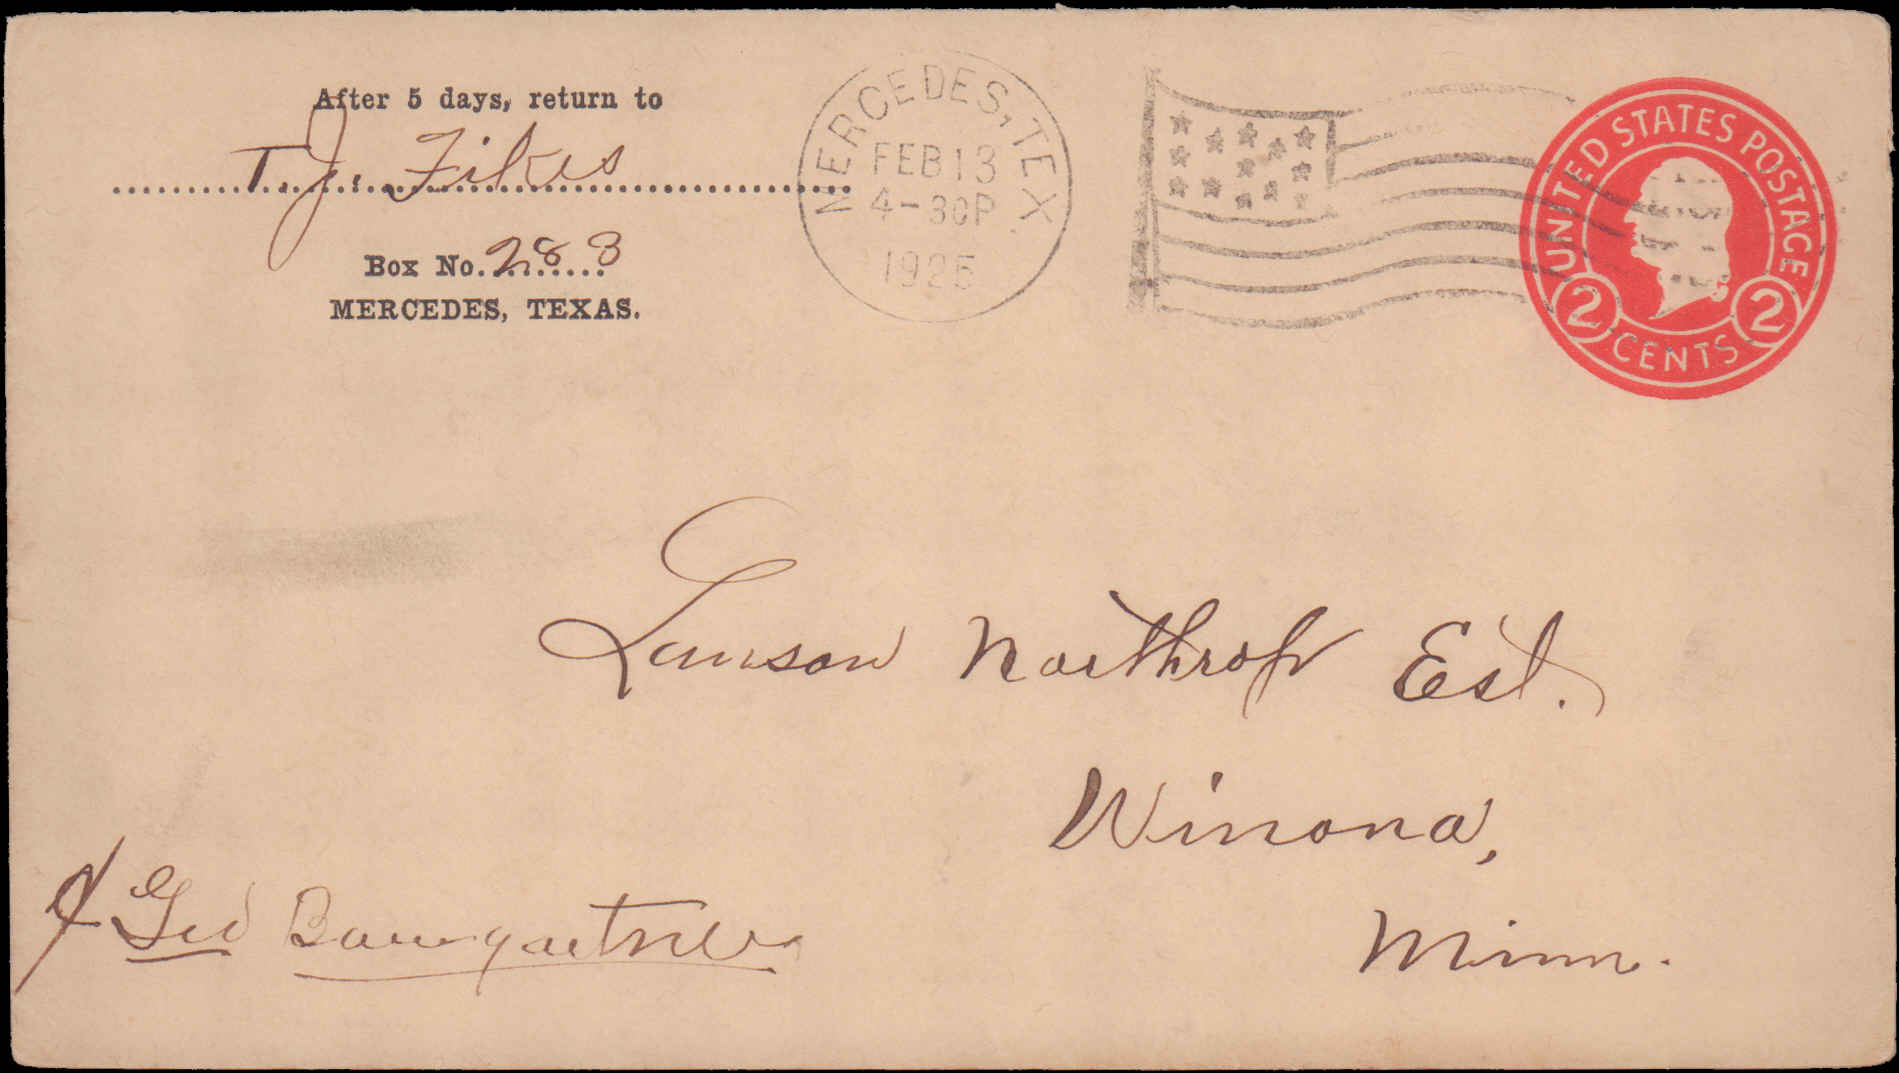 After 5 days, return to
T. J. Fikes
Box No. 283
MERCEDES, TEXAS.
MERCEDES, TEX.
FEB 13
4-30P
1925
UNITED STATES POSTAGE
2 CENTS 2
Lamson Northrop Est.
Winona,
Minn.
c/ Geo Baumgartner